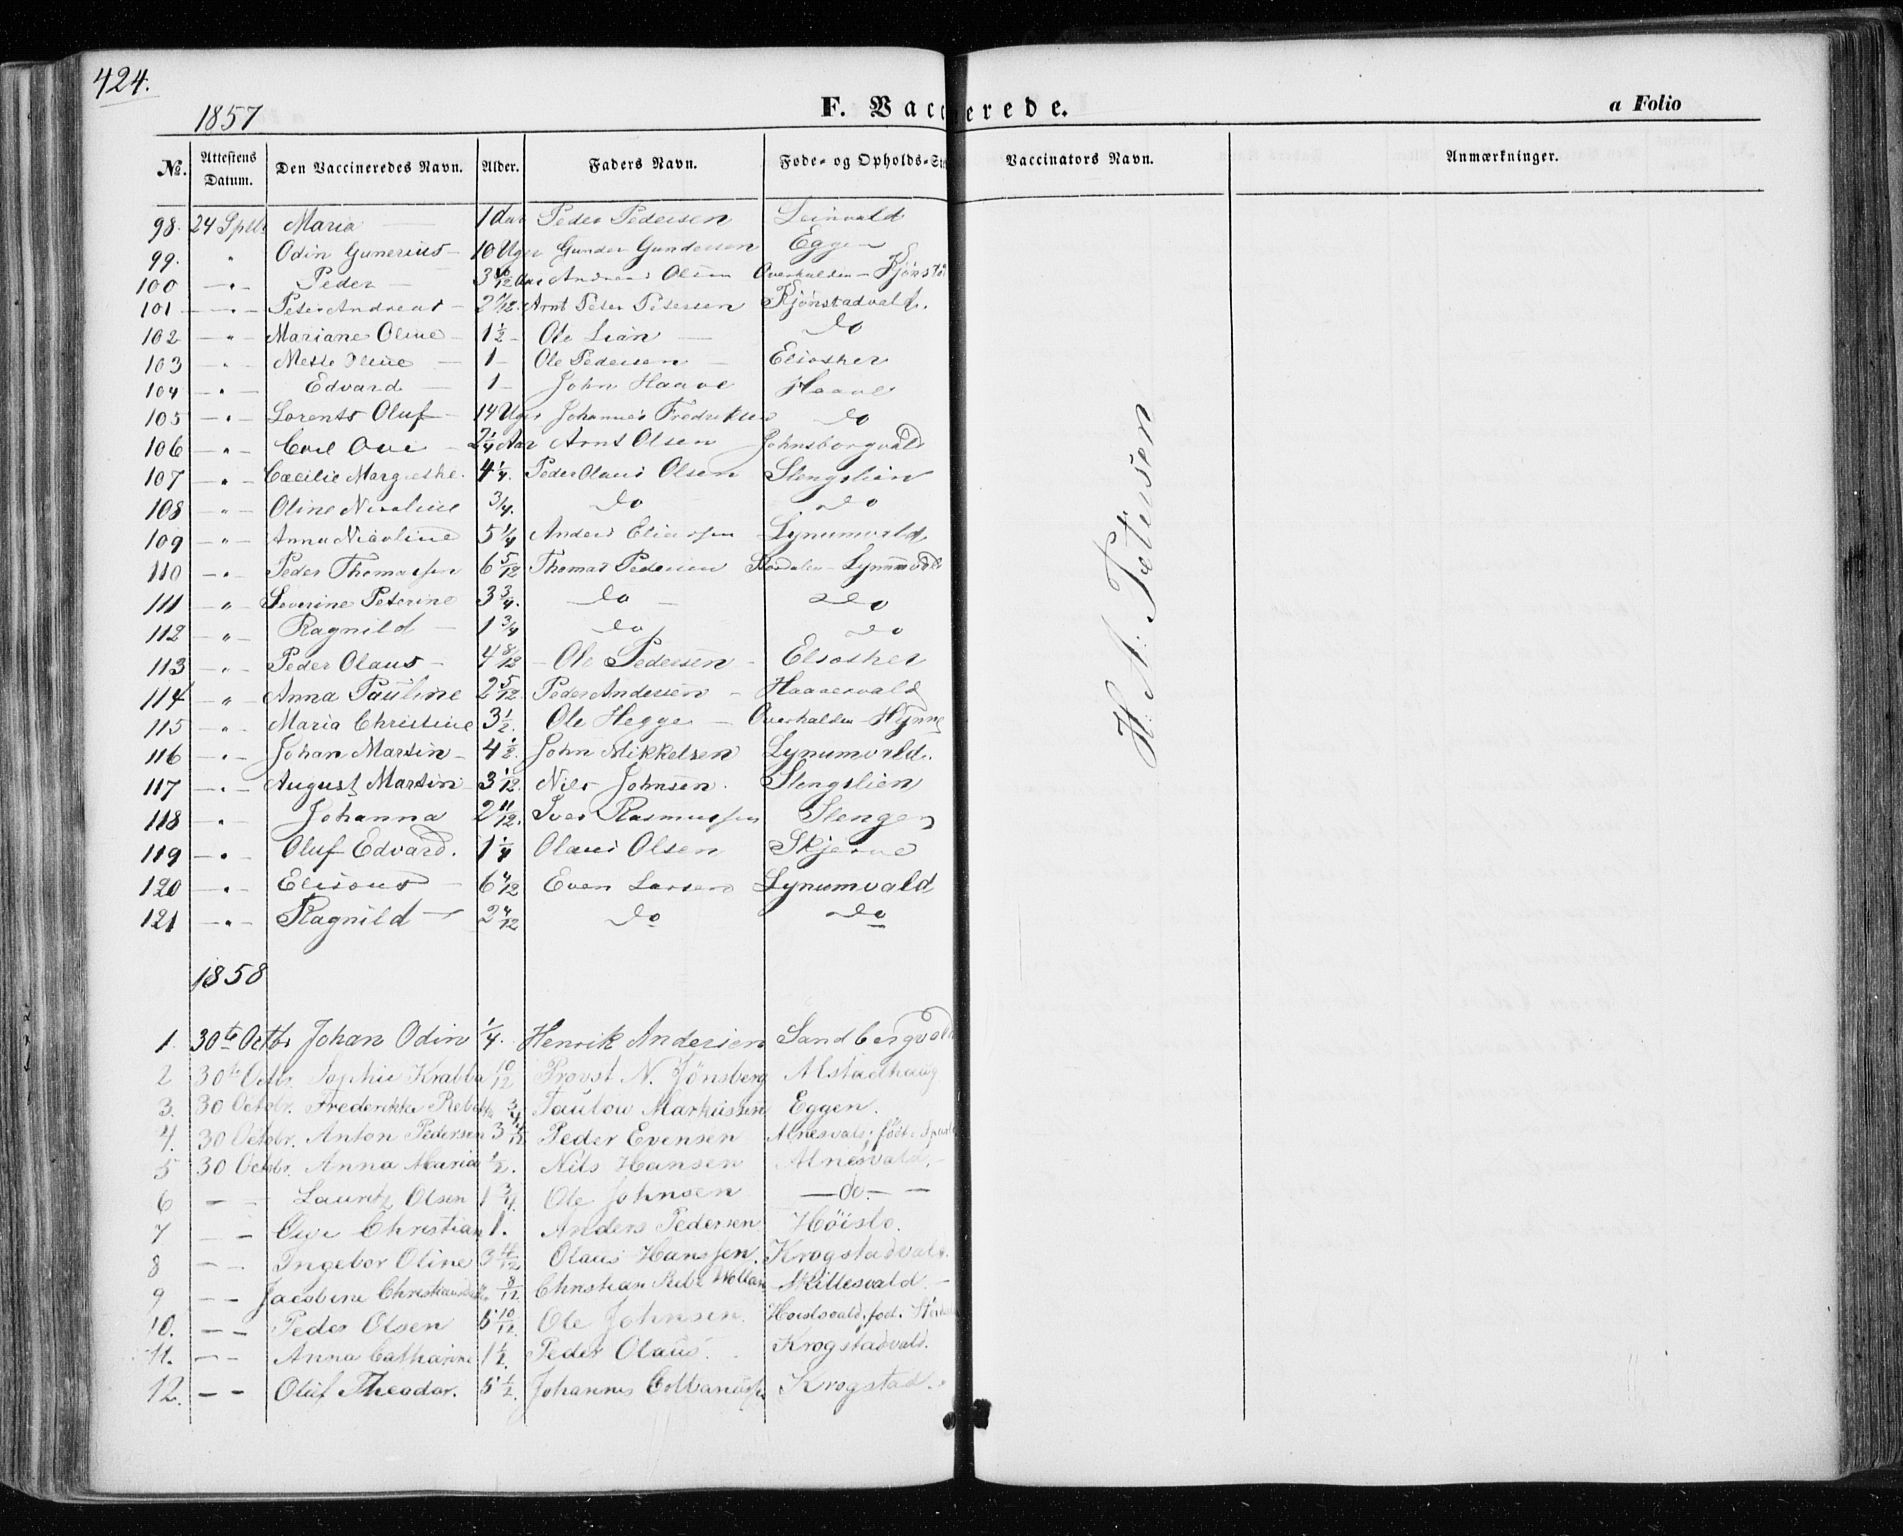 424.
1857
F. Vaccinerede.
a Folio
No. Attestens Datum. Den Vaccineredes Navn. Alder. Faders Navn. Føde- og Opholds-Ste Vaccinators Navn. Anmærkninger.
98. 24 Sptbr Maria — 1 Aar Peder Pedersen Leinvald
99. " Odin Gunerius — 10 Uger Gunder Gundersen Eggen
100 — " — Peder — 3 10/12 Aar Andreas Olsen Overhalden — Kjönsta
101 — " — Peter Andreas — 2 Arnt Peter Petersen Kjönstadvald.
102 — " Mariane Oline — 1 1/2 — Ole Lian — do
103 " Mette Oline — 1 — Ole Pedersen — Elsosher
104 — " — Edvard — 1 — John Haave Haave
105 — " — Lorents Oluf — 14 Uger Johannes Fredriksen do
106 — " Carl Ove — 2 1/4 Aar Arnt Olsen Johnsborgvald
107 — " Cæcilie Margrethe. 4 1/4. Peder Olaus Olsen Slengslien
108 — " Oline Nicoline 3/4. do do
109 — " Anna Nicoline 5 1/4 Anders Eliassen Lynumvald
110 — " Peder Thomassen 6 5/12 Thomas Pedersen Lynumvald
111 — " Severine Peterine 3 3/4. do — do
112 — " Ragnild — 1 3/4 do do
113 — " Peder Olaus — 4 8/12 — Ole Pedersen — Elsosher
114 — " Anna Pauline 2 5/12. Peder Andersen — Haavevald
115 — " Maria Christine 3 1/2. Ole Hegge — Overhalden — Hynne
116 — " — Johan Martin — 4 1/2. John Mikkelsen Lynumvald.
117 — " — August Martin 3 1/12. Nils Johnsen. Slengslien
118 — " Johanna 2 11/12. Iver Rasmussen Slenge
119 — " — Oluf Edvard. 1 1/4 Olaus Olsen Skjerve
120 — " — Elisous — 6 Even Larsen Lynumvald
121 — " — Ragnild — 2 do do
H: A: Petersen
1858
1. 30te Octbr Johan Odin 1/4. Henrik Andersen Sandbergvald
2 30te Octbr. Sophie Krabbe 10/12 Provst N. Jönsberg Alstadhaug
3. 30 Octobr. Frederikke Rebekka 3/4 Taulow Markussen Eggen.
4. 30 Octobr. Anton Pedersen 3 Peder Evensen Alnesvald, født i
5 30 Octobr. Anna Maria 1/2. Nils Hansen Alnesvald, —
6 — — Lauritz Olsen 1 3/4. Ole Johnsen — do. — —
7 — — Ove Christian 1. Anders Pedersen Höislo.
8 — — Ingebor Oline 3 Olaus Hanssen. Krogstadvald.
9 — — Jacobine 8/12. Christian Wollan Millesvald —
10. — — Peder Olsen 5 10/12. Ole Johnsen. Höislovald, fød.
11. — — Anna Catharine 1 1/2. Peder Olaus. Krogstadvald.
12. — — Oluf Theodor. 5 1/2. Johannes Krogstad.